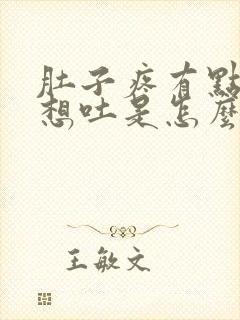 肚子疼有點
想吐是怎麼
王敏文